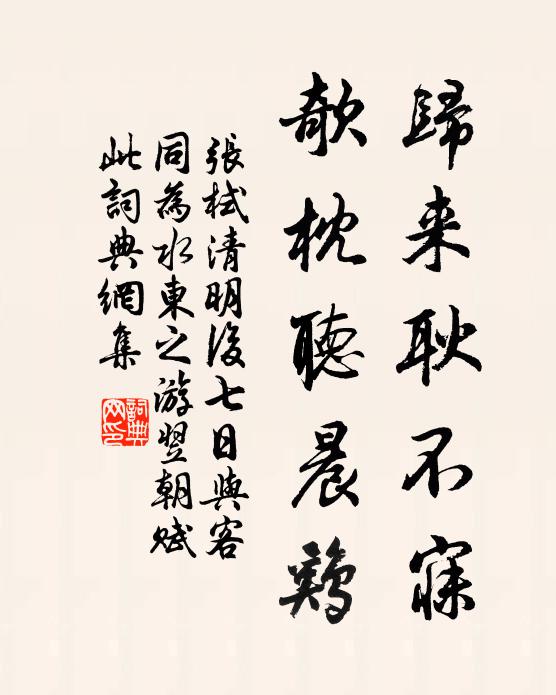 歸来耿不寐
欹枕聽晨鷄
張栻清明後七日與客
同為水東之游翌朝賦
此詞典網集
詞典網印